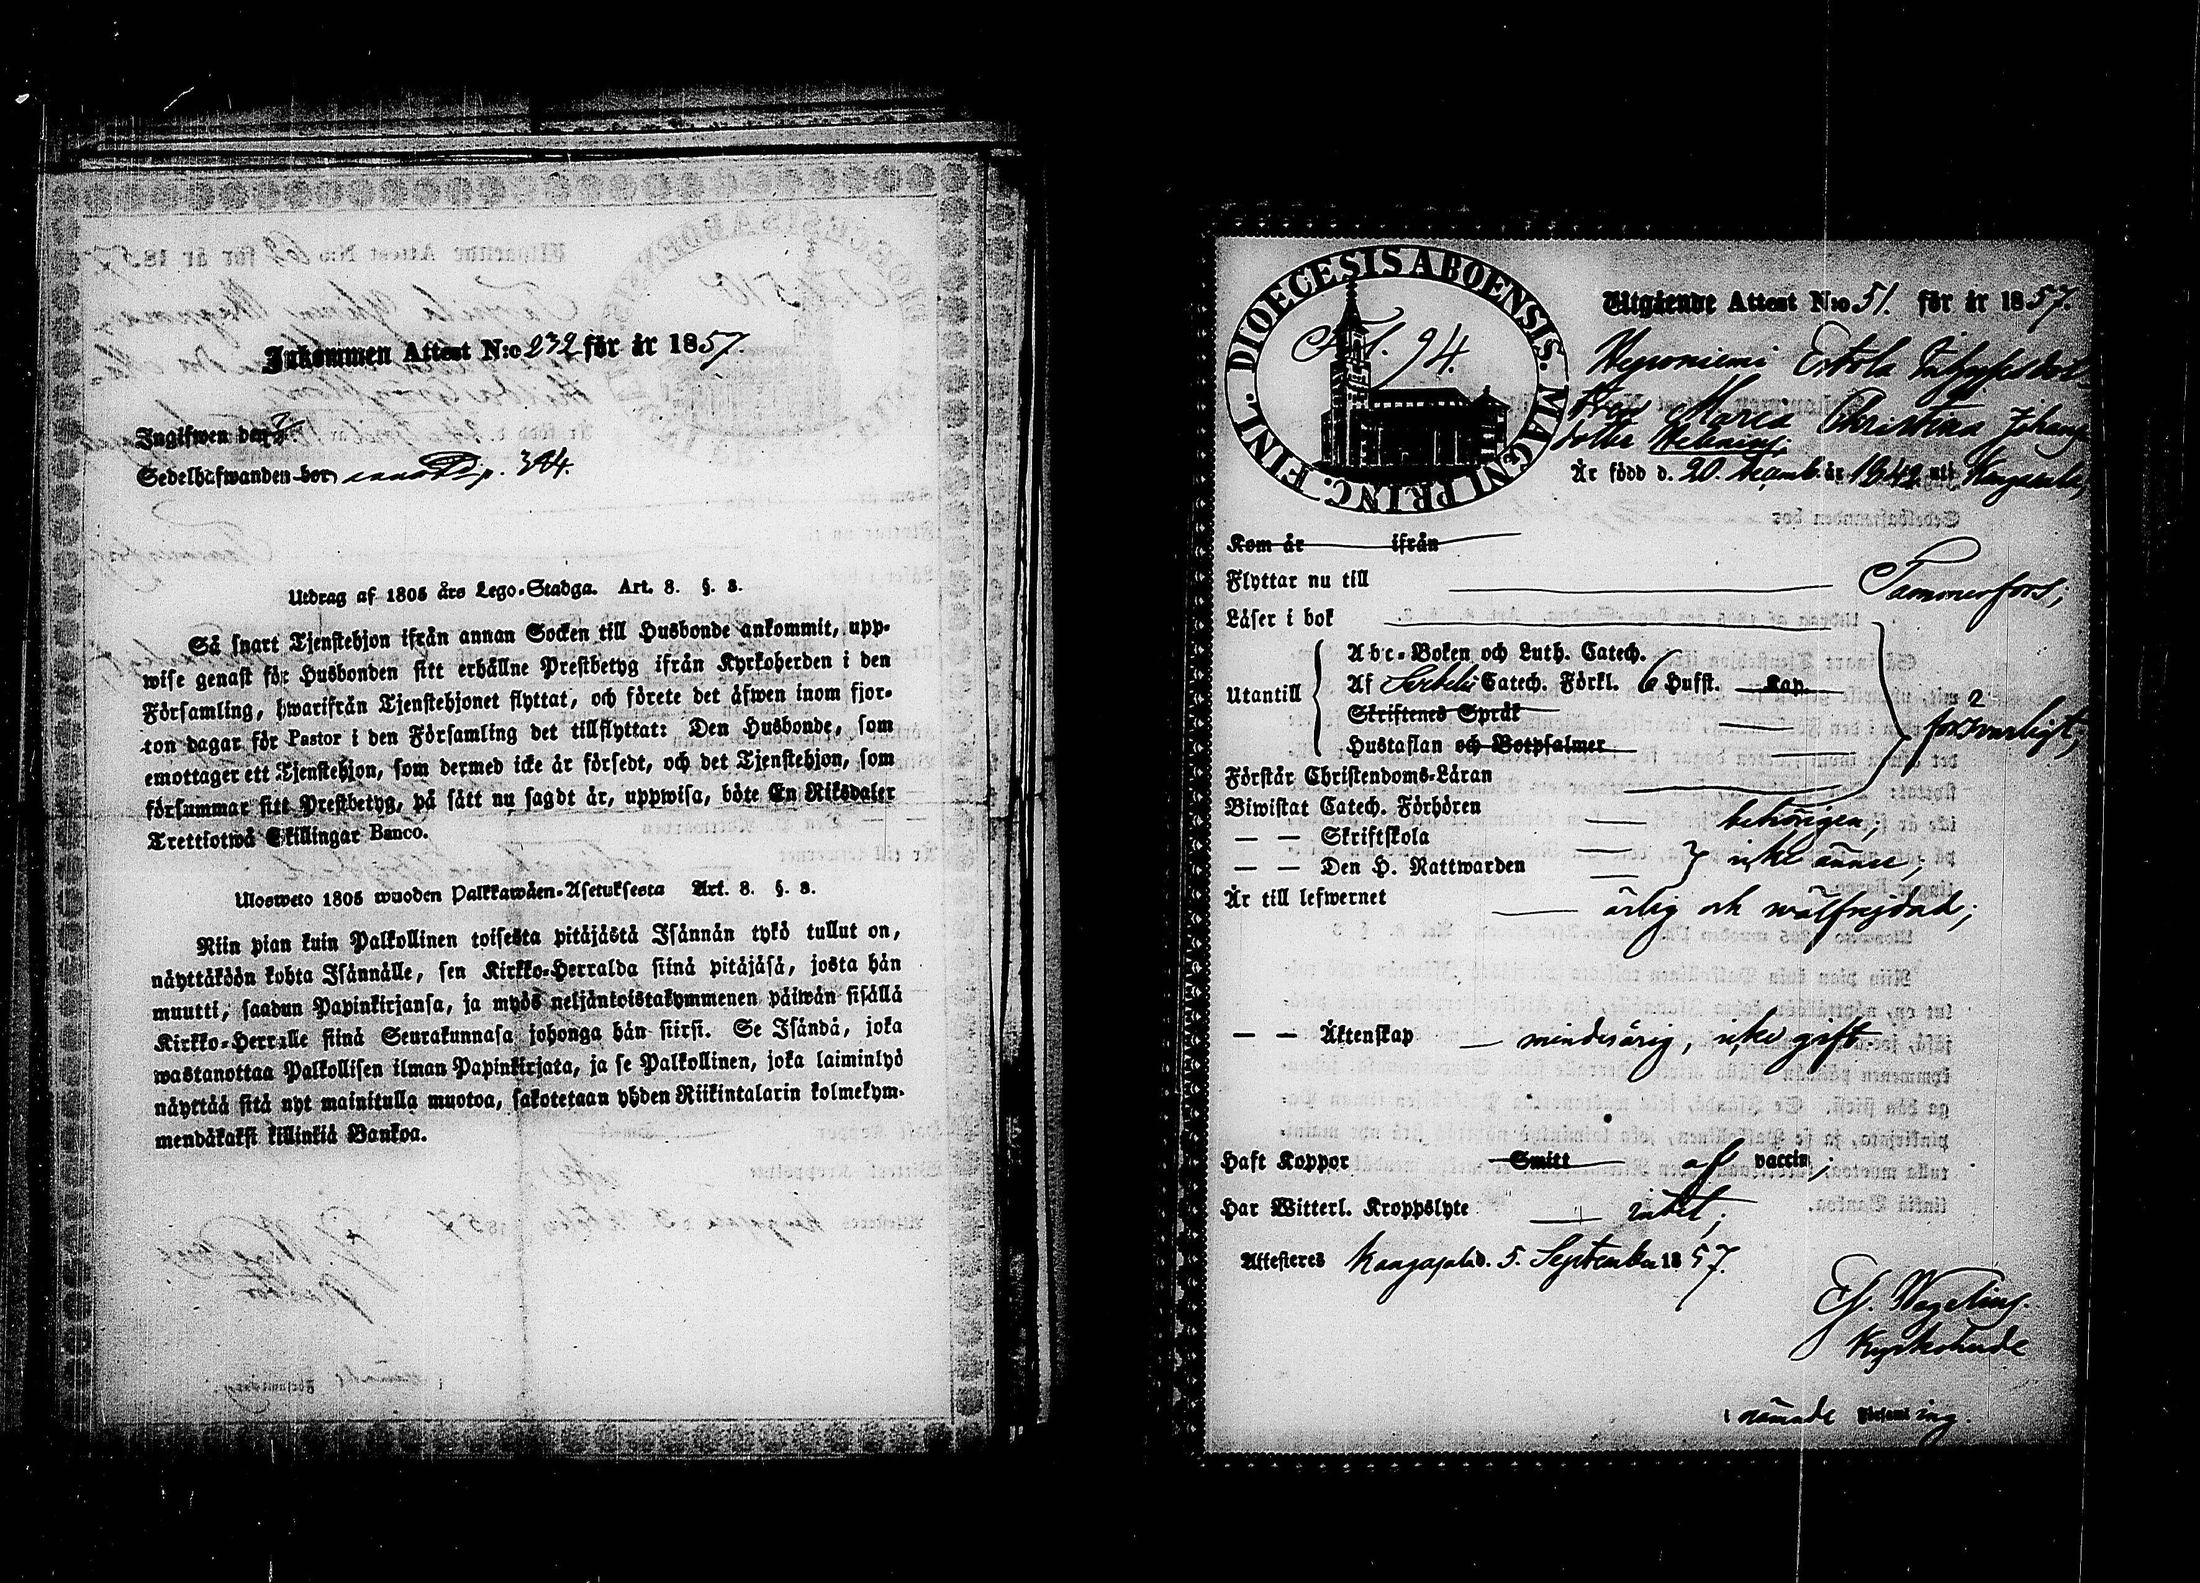 Inkommen Attest N:o 232 för år 1857.
Ingifwen den
Sedelhafwanden bor p. 384.
Utdrag af 1805 års Lego-Stadga. Art. 8. §. 3.
Så snart Tjenstehjon ifrån annan Socken till Husbonde ankommit, upp-
wise genast för Husbonden sitt erhållne Prestbetyg ifrån Kyrkoherden i den
Församling, hwarifrån Tjenstehjonet flyttat, och förete det äfwen inom fjor-
ton dagar för Pastor i den Församling det tillflyttat: Den Husbonde, som
emottager ett Tjenstehjon, som dermed icke är försedt, och det Tjenstehjon, som
försummar sitt Prestbetyg, på sätt nu sagdt är, uppwisa, böte En Riksdaler
Trettiotwå Skillingar Banco.
Ulosweto 1805 wuoden Palkkawäen-Asetuksesta Art. 8. §. 3.
Niin pian kuin Palkollinen toisesta pitäjästä Isännän tykö tullut on,
näyttäköön kohta Isännälle, sen Kirkko-Herralda siinä pitäjäsä, josta hän
muutti, saadun Papinkirjansa, ja myös neljäntoistakymmenen päiwän sisällä
Kirkko-Herralle siinä Seurakunnasa johonga hän siirsi. Se Isändä, joka
wastanottaa Palkollisen ilman Papinkirjata, ja se Palkollinen, joka laiminlyö
näyttää sitä nyt mainitulla muotoa, sakotetaan yhden Riikintalarin kolmekym-
mendäkaksi killinkiä Bankoa.
DIOECESIS ABOENSIS. MAGNI PRINC. FINL.
Fol. 94.
Utgående Attest N:o 51. för år 1857.
Heponiemi Ertola
Maria Christina Johans
dotter
Är född d. 20. Decemb. år 1842 uti Kangasala;
Kom år ifrån
Flyttar nu till Tammerfors;
Läser i bok
Utantill
Abc-Boken och Luth. Catech.
Af Catech. Förkl. 6 Hufst. Kap.
Skriftenes Språk
Hustaflan och Botpsalmer
försvarligt;
Förstår Christendoms-Läran
Biwistat Catech. Förhören behörigen;
— — Skriftskola
— — Den H. Nattwarden icke ännu;
Är till lefwernet ärlig och wälfrejdad;
— — Äktenskap — minderårig, icke gift.
Haft Koppor Smitt af vaccin;
Har Witterl. Kroppslyte intet;
Attesteres Kangasala d. 5. September 1857.
Ef. Wegelius.
Kyrkoherde
i nämnde Församling.